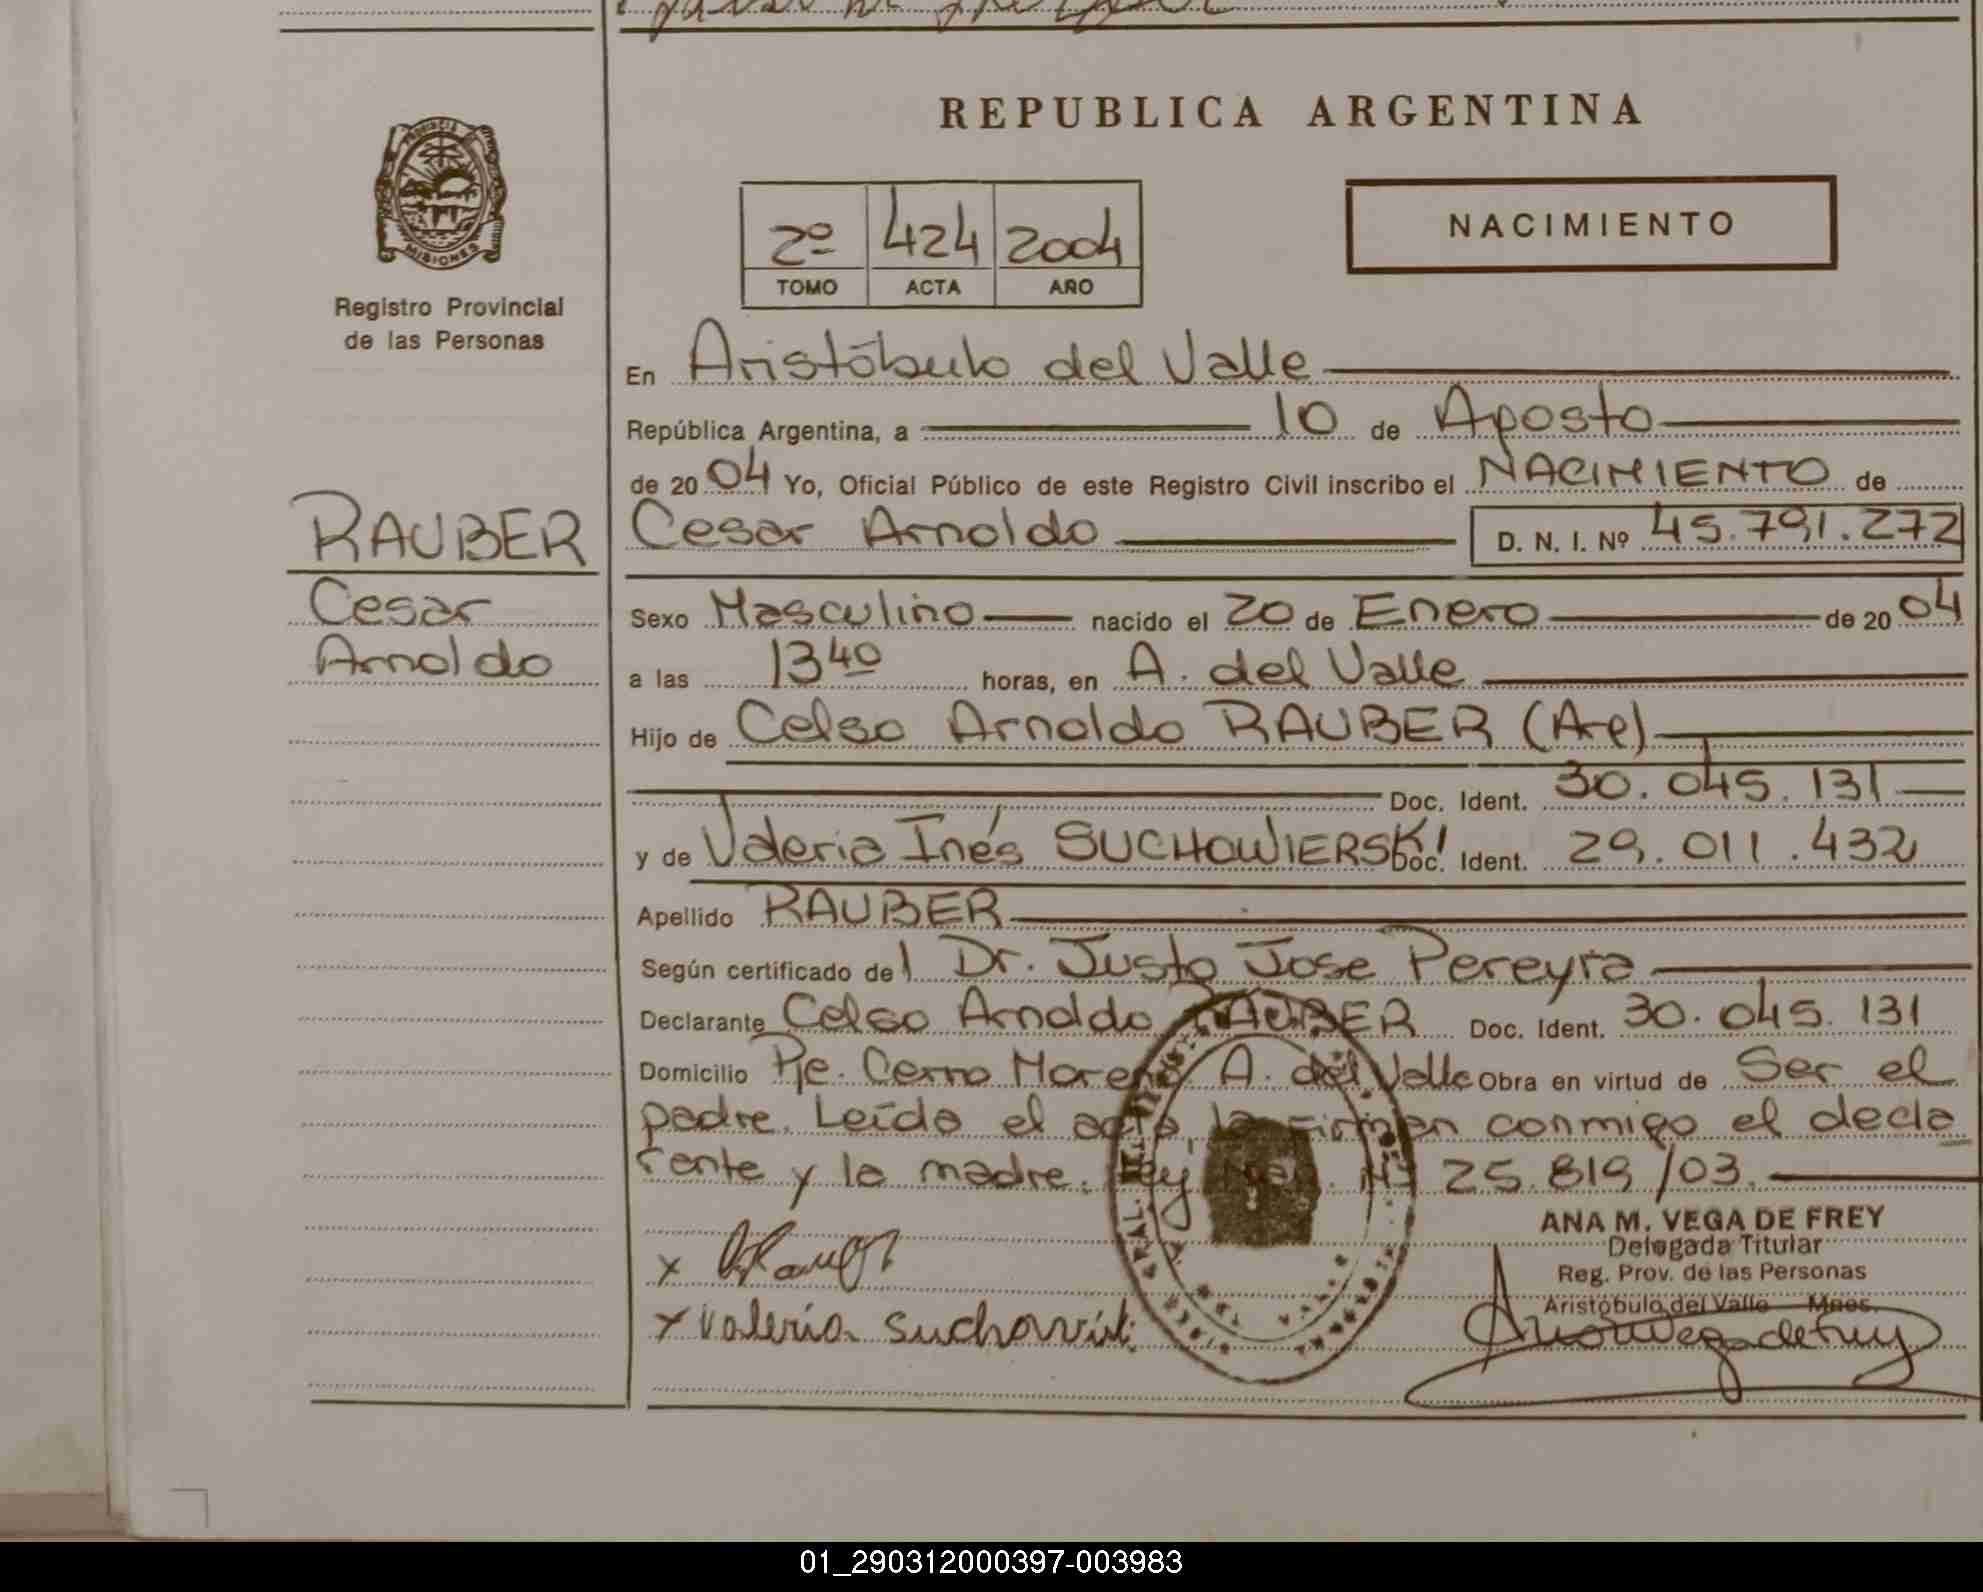 REPUBLICA ARGENTINA
PROVINCIA DE MISIONES
Registro Provincial
de las Personas
2º 424 2004
TOMO ACTA AÑO
NACIMIENTO
En Aristóbulo del Valle
República Argentina, a 10 de Agosto
de 2004 Yo, Oficial Público de este Registro Civil inscribo el NACIMIENTO de
RAUBER
Cesar
Arnoldo
Cesar Arnoldo D. N. I. Nº 45.791.272
Sexo Masculino nacido el 20 de Enero de 2004
a las 13 40 horas, en A. del Valle
Hijo de Celso Arnoldo RAUBER (Arg)
Doc. Ident. 30.045.131
y de Valeria Inés SUCHOWIERSKI Doc. Ident. 29.011.432
Apellido RAUBER
Según certificado del Dr. Justo Jose Pereyra
Declarante Celso Arnoldo RAUBER Doc. Ident. 30.045.131
Domicilio Pje. Cerro Moreno A. del Valle Obra en virtud de Ser el
padre. Leída el acta, la firman conmigo el decla
rante y la madre. Ley Nº 25.819/03.
x
x Valeria
ANA M. VEGA DE FREY
Delegada Titular
Reg. Prov. de las Personas
Aristóbulo del Valle Mnes.
01_290312000397-003983